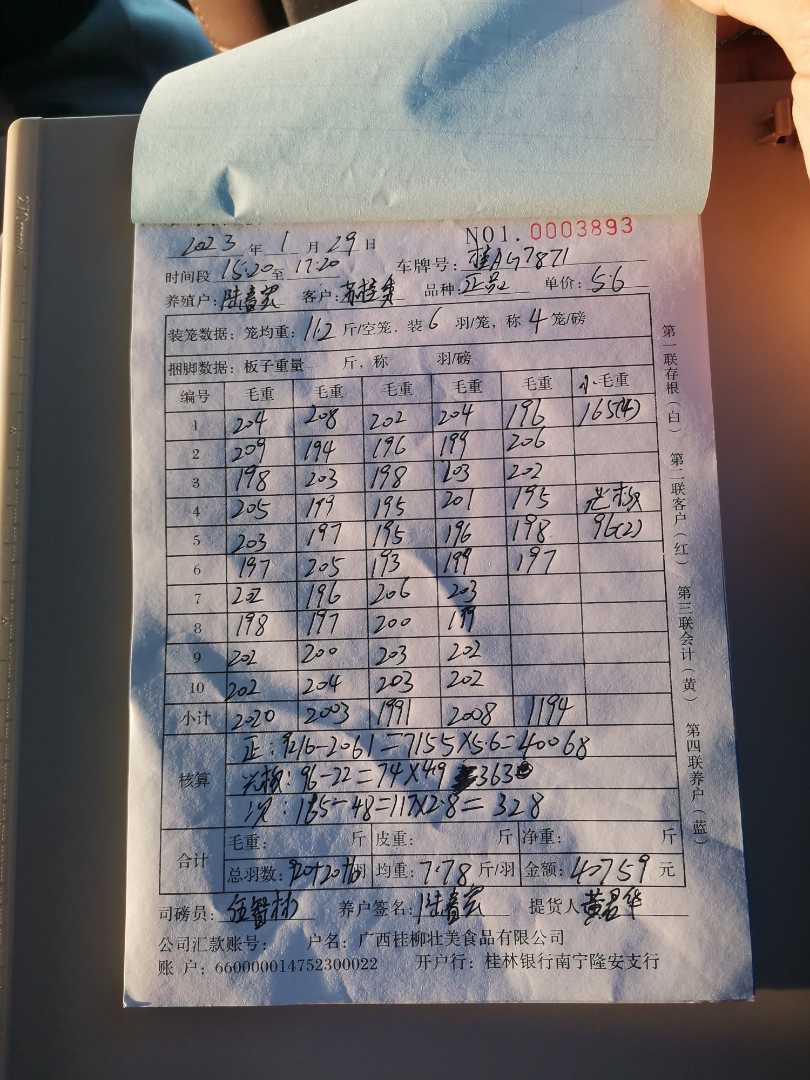 2023 年 1 月 29 日 NO1. 0003893
时间段 15:20 至 17:20 车牌号: 桂AG7871
养殖户: 陆 客户: 苏桂 品种: 正品 单价: 5.6
装笼数据: 笼均重: 11.2 斤/空笼, 装 6 羽/笼, 称 4 笼/磅
捆脚数据: 板子重量 斤, 称 羽/磅
编号 毛重 毛重 毛重 毛重 毛重 小毛重
1 204 208 202 204 196 165(4)
2 209 194 196 199 206
3 198 203 198 203 202
4 205 199 195 201 195
5 203 197 195 196 198 96(2)
6 197 205 193 199 197
7 202 196 206 203
8 198 197 200 199
9 202 200 203 202
10 202 204 203 202
小计 2020 2003 1991 2008 1194
核算
正: 9216-2061=7155×5.6=40068
96-22=74×4.9 363
165-48=117×2.8=328
合计
毛重: 斤 皮重: 斤 净重: 斤
总羽数: 羽 均重: 7.78 斤/羽 金额: 40759 元
司磅员: 养户签名: 陆 提货人 黄
公司汇款账号: 户名: 广西桂柳壮美食品有限公司
账 户: 660000014752300022 开户行: 桂林银行南宁隆安支行
第一联存根(白) 第二联客户(红) 第三联会计(黄) 第四联养户(蓝)